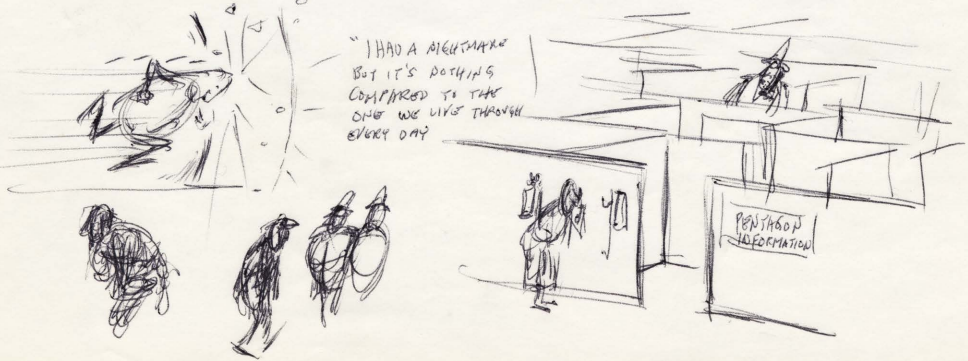 "I HAD A NIGHTMARE
BUT IT'S NOTHING
COMPARED TO THE
ONE WE LIVE THROUGH
EVERY DAY
PENTAGON
INFORMATION